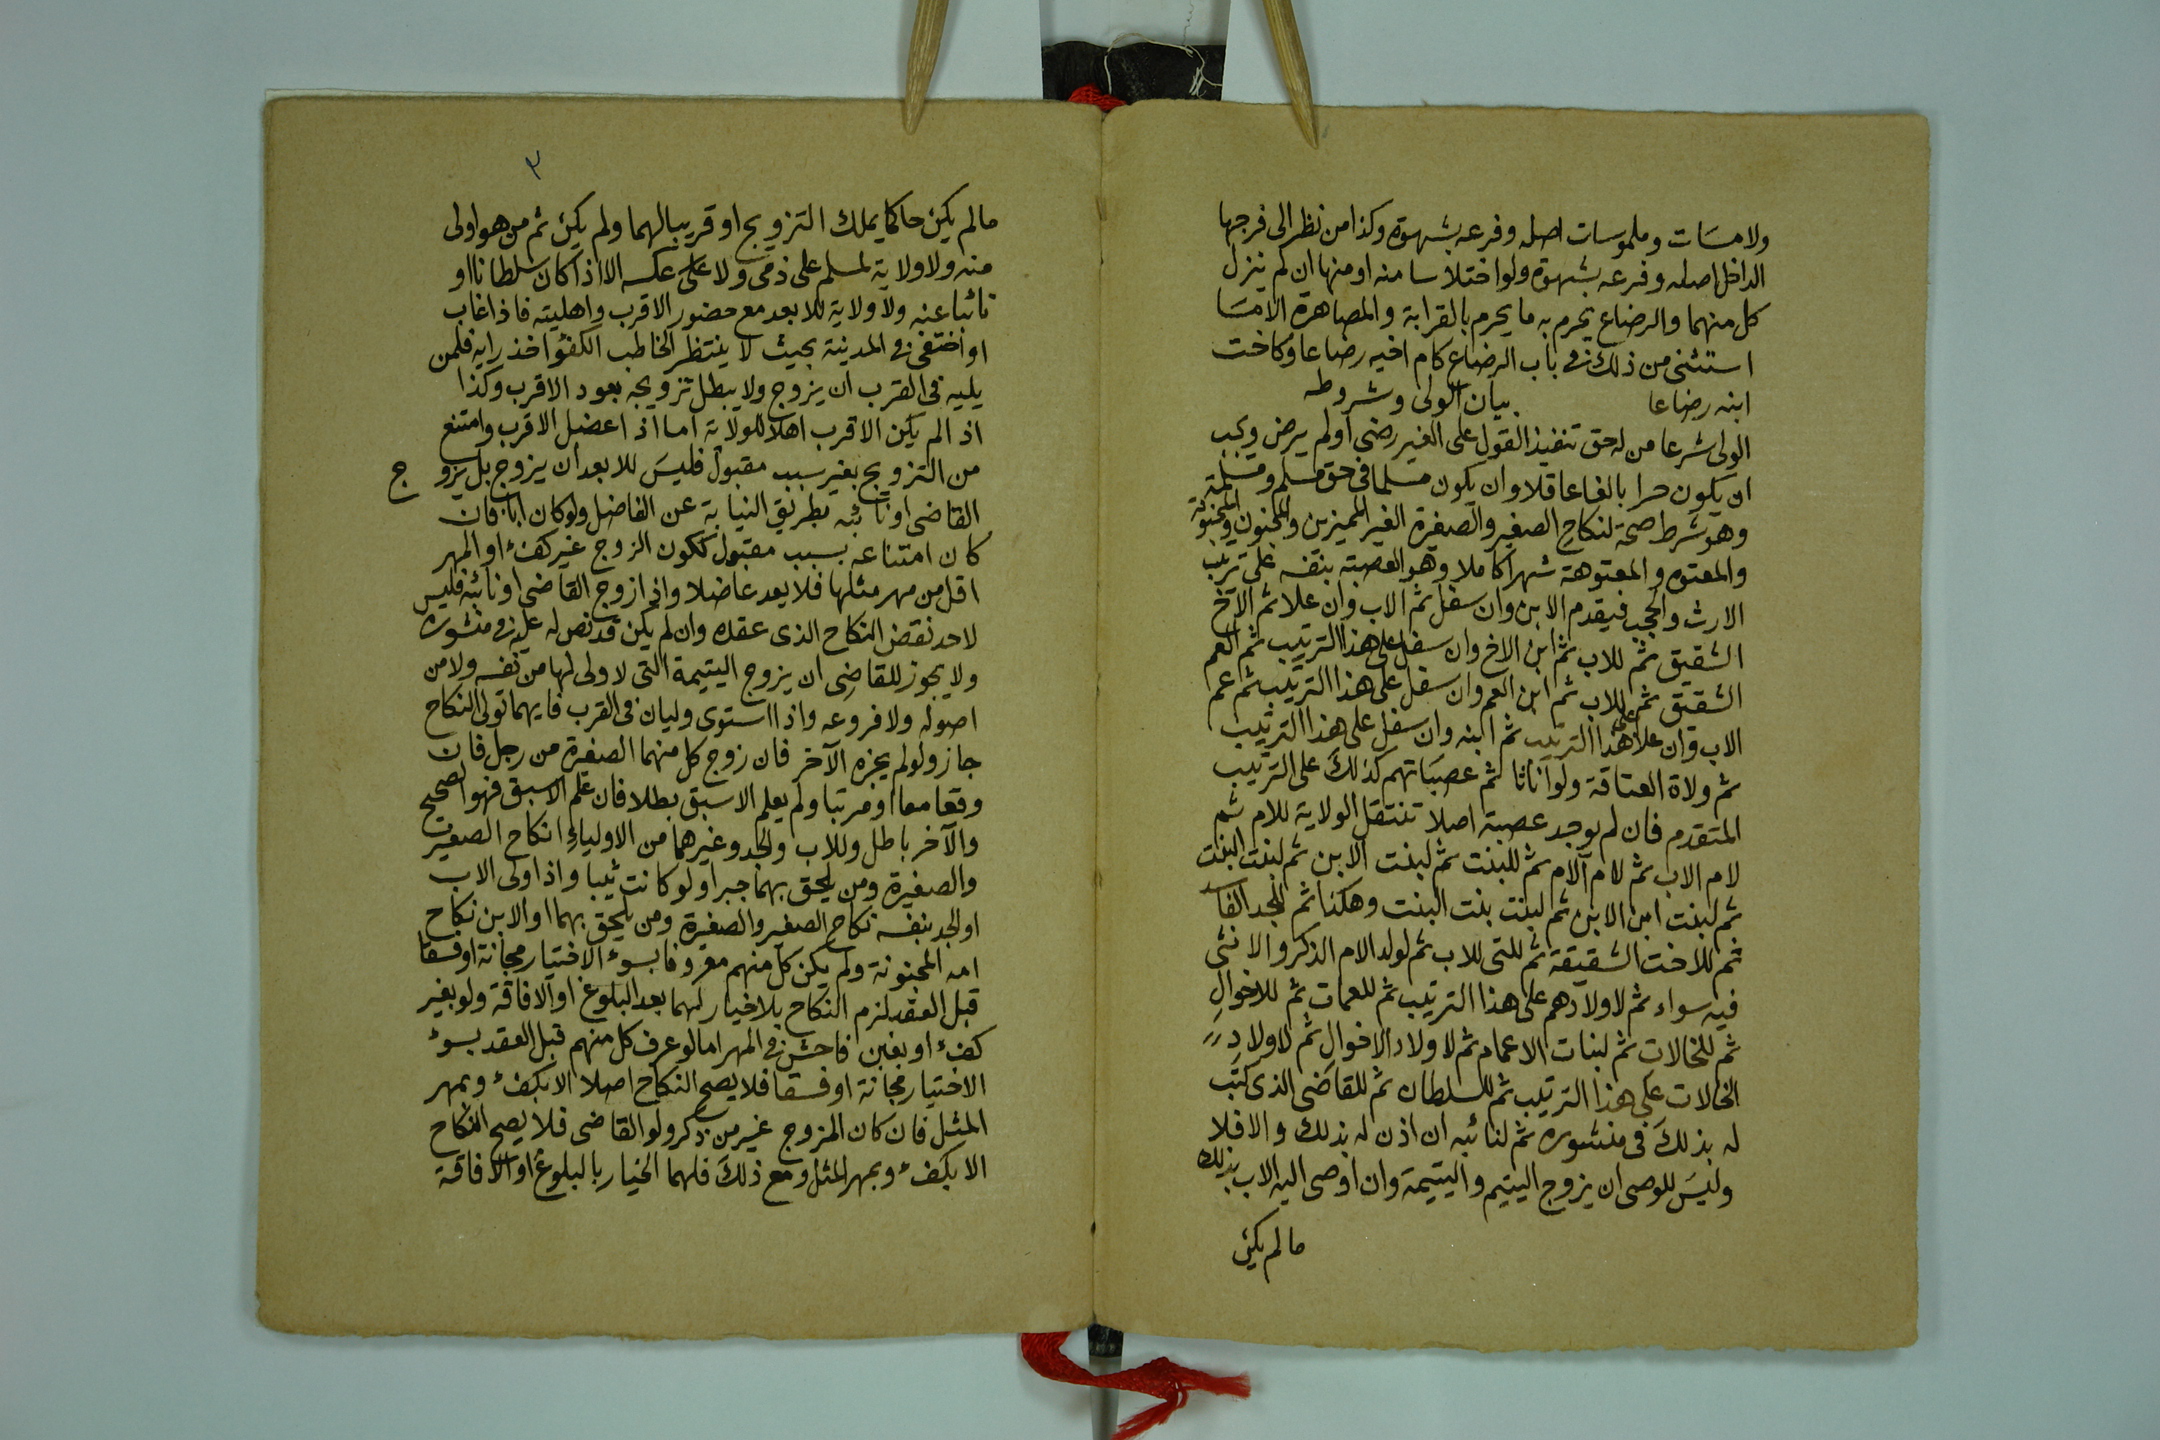 ولامسات وملموسات اصله وفرعه بشهوة وكذا من نظر الى فرجها
الداخل اصله وفرعه بشهوة ولو اختلاسا منه او منها ان لم ينزل
كل منهما والرضاع يحرم به ما يحرم بالقرابة والمصاهرة الا مسا
استثنى من ذلك فى باب الرضاع كام اخيه رضاعا وكاخت
ابنه رضاعا بيان الولى وشروطه
الولى شرعا من له حق تنفيذ القول على الغير رضى او لم يرض ويجب
ان يكون حرا بالغا عاقلا وان يكون مسلما فى حق مسلم ومسلمة
وهو شرط صحة لنكاح الصغير والصغيرة الغير المميزين والمجنون والمجنونة
والمعتوه والمعتوهة شهرا كاملا وهو العصبة بنفسه على ترتيب
الارث والحجب فيقدم الابن وان سفل ثم الاب وان علا ثم الاخ
الشقيق ثم للاب ثم ابن الاخ وان سفل على هذا الترتيب ثم العم
الشقيق ثم للاب ثم ابن العم وان سفل على هذا الترتيب ثم عم
الاب وان علا على هذا الترتيب ثم ابنه وان سفل على هذا الترتيب
ثم ولاة العتاقة ولو اناثا ثم عصباتهم كذلك على الترتيب
المتقدم فان لم يوجد عصبة اصلا تنتقل الولاية للام ثم
لام الاب ثم لام الام ثم للبنت ثم لبنت الابن ثم لبنت البنت
ثم لبنت ابن الابن ثم لبنت بنت البنت وهكذا ثم للجد الفاسد
ثم للاخت الشقيقة ثم للتى للاب ثم لولد الام الذكر والانثى
فيه سواء ثم لاولادهم على هذا الترتيب ثم للعمات ثم للاخوال
ثم للخالات ثم لبنات الاعمام ثم لاولاد الاخوال ثم لاولاد
الخالات على هذا الترتيب ثم للسلطان ثم للقاضى الذى كتب
له بذلك فى منشوره ثم لنائبه ان اذن له بذلك والا فلا
وليس للوصى ان يزوج اليتيم واليتيمة وان اوصى اليه الاب بذلك
مالم يكن
٣
مالم يكن حاكما يملك التزويج او قريبا لهما ولم يكن ثم من هو اولى
منه ولا ولاية لمسلم على ذمى ولا على عكسه الا اذا كان سلطانا او
نائبا عنه ولا ولاية للابعد مع حضور الاقرب واهليته فاذا غاب
او اختفى فى المدينة بحيث لا ينتظر الخاطب الكفؤ اخذ رايه فلمن
يليه فى القرب ان يزوج ولا يبطل تزويجه بعود الاقرب وكذا
اذ الم يكن الاقرب اهلا للولاية اما اذ اعضل الاقرب وامتنع
من التزويج بغير سبب مقبول فليس للابعد ان يزوج بل يزو ج
القاضى او نائبه بطريق النيابة عن الفاضل ولو كان ابا فان
كان امتناعه بسبب مقبول ككون الزوج غير كفء او المهر
اقل من مهر مثلها فلا يعد عاضلا واذ ازوج القاضى او نائبه فليس
لاحد نقض النكاح الذى عقده وان لم يكن قد نص له عليه فى منشوره
ولا يجوز للقاضى ان يزوج اليتيمة التى لا ولى لها من نفسه ولا من
اصوله ولا فروعه واذا استوى وليان فى القرب فايهما تولى النكاح
جاز ولو لم يجزه الآخر فان زوج كل منهما الصغيرة من رجل فان
وقعا معا او مرتبا ولم يعلم الاسبق بطلا فان علم الاسبق فهو الصحيح
والآخر باطل وللاب والجد وغيرهما من الاولياء انكاح الصغير
والصغيرة ومن يلحق بهما جبرا ولو كانت ثيبا واذا ولى الاب
او الجد بنفسه نكاح الصغير والصغيرة ومن يلحق بهما او الابن نكاح
امه المجنونة ولم يكن كل منهم معروفا بسوء الاختيار مجانة او فسقا
قبل العقد لزم النكاح بلا خيار لهما بعد البلوغ او الافاقة ولو بغير
كفء او بغبن فاحش فى المهر اما لو عرف كل منهم قبل العقد بسوء
الاختيار مجانة او فسقا فلا يصح النكاح اصلا الا بكفء وبمهر
المثل فان كان المزوج غير من ذكر ولو القاضى فلا يصح النكاح
الا بكفء وبمهر المثل ومع ذلك فلهما الخيار بالبلوغ او الافاقة